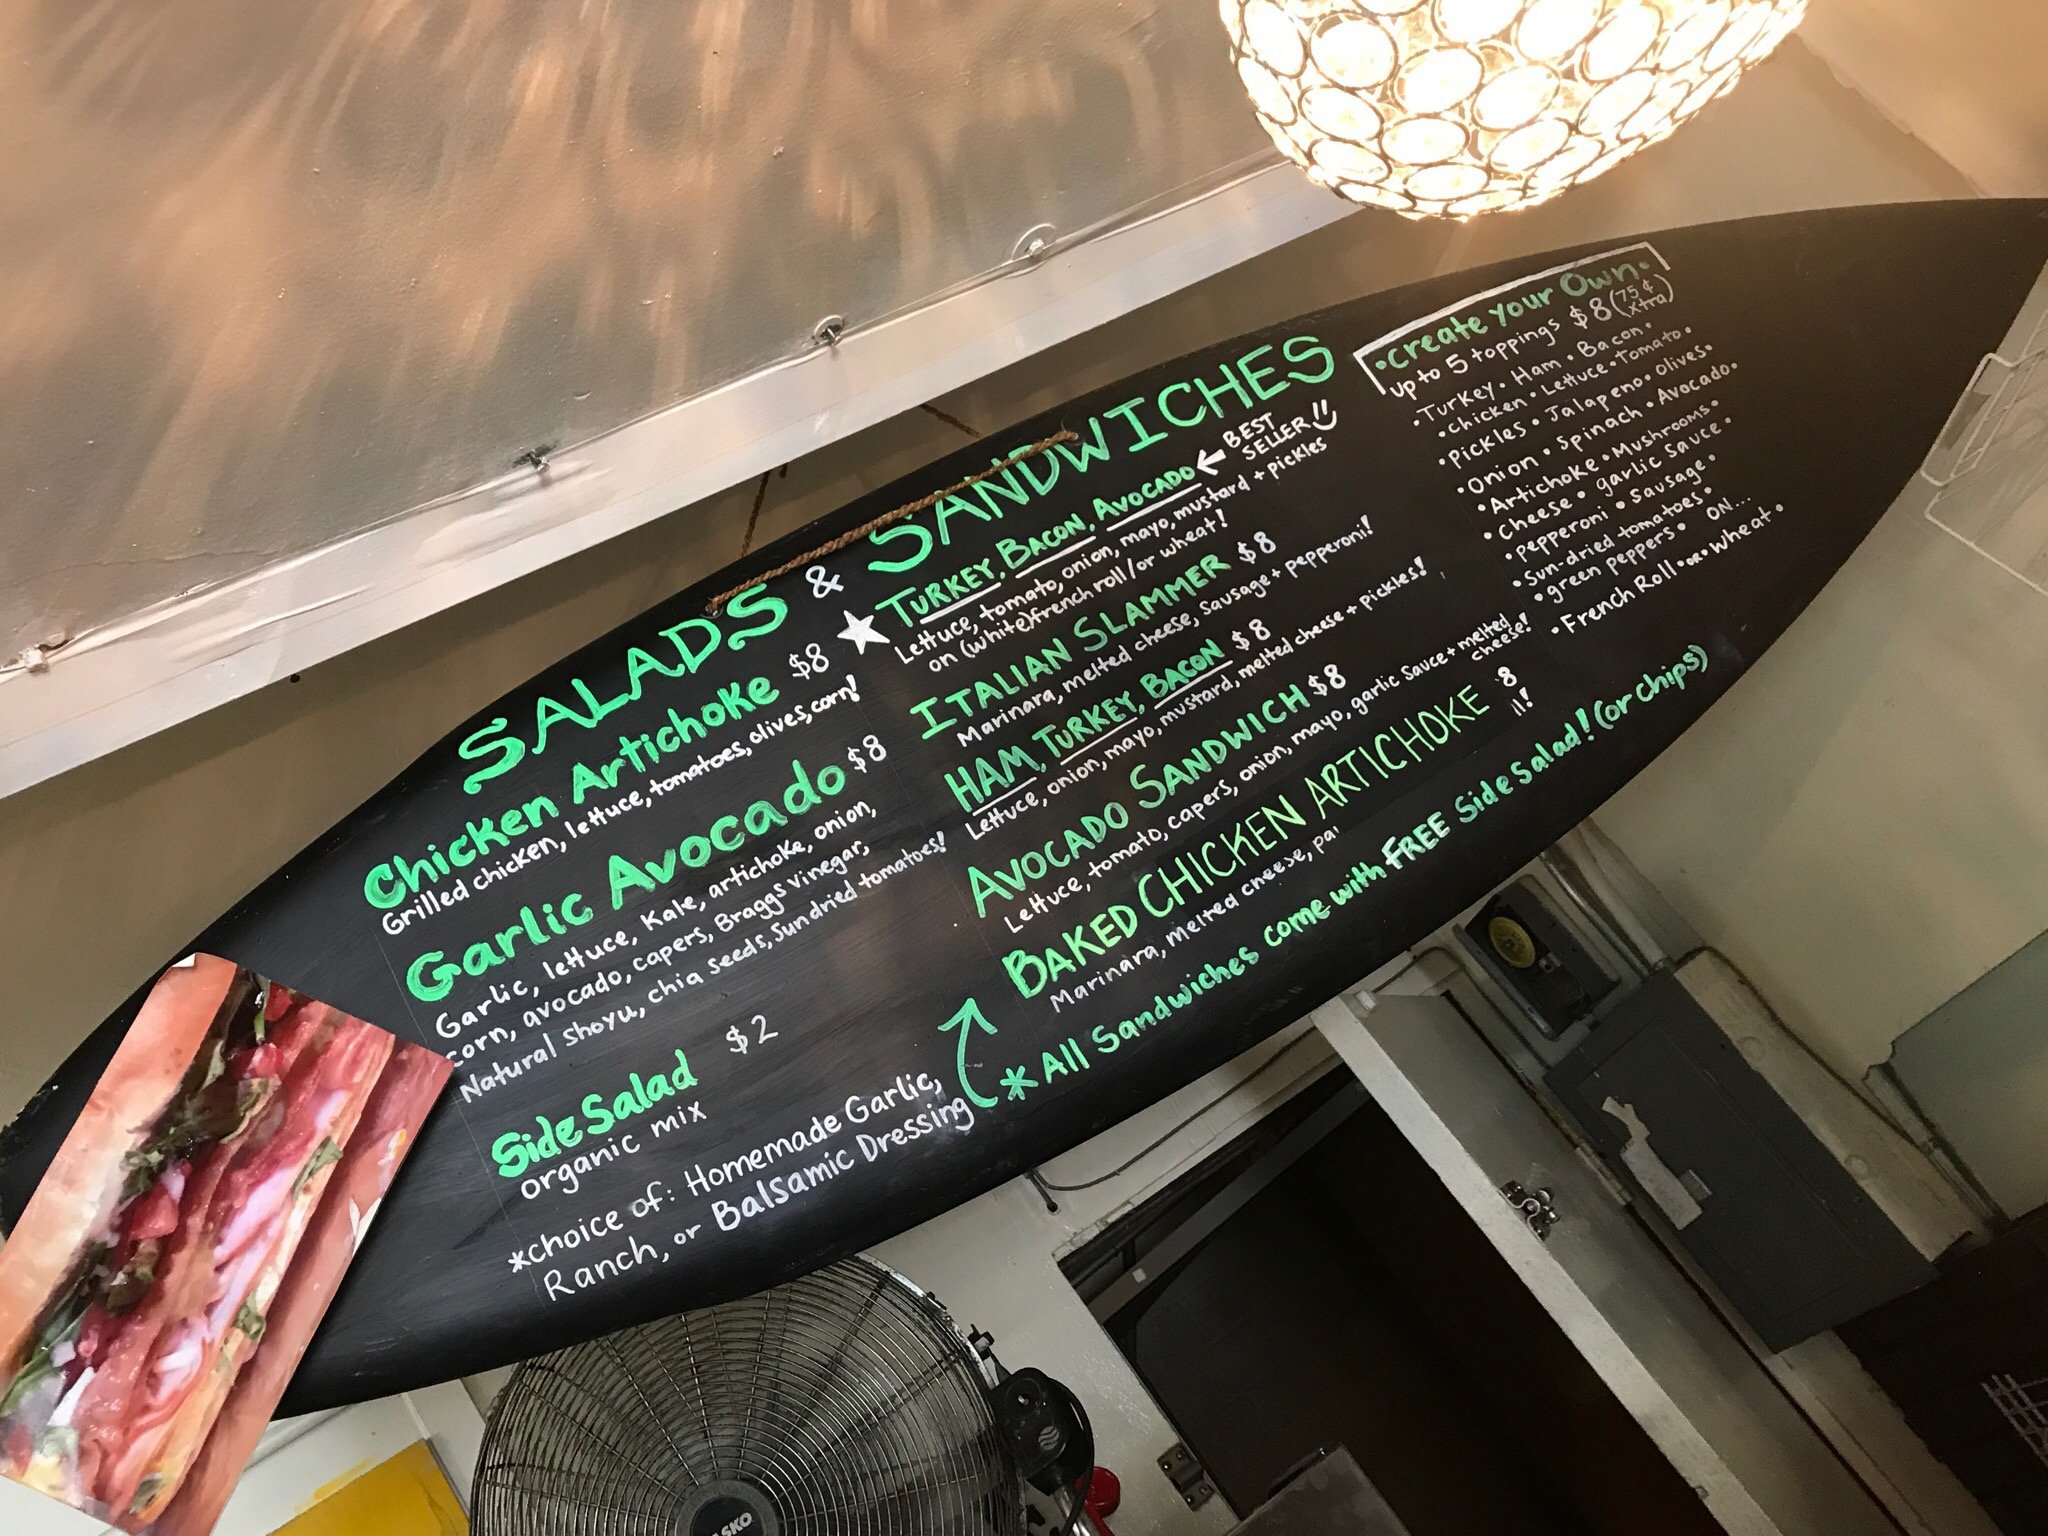 SALADS & SANDWICHES
Chicken Artichoke $8
Grilled chicken, lettuce, tomatoes, olives, corn!
Garlic Avocado $8
Garlic, lettuce, Kale, artichoke, onion,
corn, avocado, capers, Braggs vinegar,
Natural shoyu, chia seeds, Sundried tomatoes!
Side Salad $2
organic mix
*choice of: Homemade Garlic,
Ranch, or Balsamic Dressing
TURKEY, BACON, AVOCADO ← BEST
SELLER
Lettuce, tomato, onion, mayo, mustard + pickles
on (white) french roll/or wheat!
ITALIAN SLAMMER $8
Marinara, melted cheese, Sausage + pepperoni!
HAM, TURKEY, BACON $8
Lettuce, onion, mayo, mustard, melted cheese + pickles!
AVOCADO SANDWICH $8
Lettuce, tomato, capers, onion, mayo, garlic sauce + melted
cheese!
BAKED CHICKEN ARTICHOKE 8
Marinara, melted cheese,
*All Sandwiches come with FREE Side Salad! (or chips)
•Create Your Own•
up to 5 toppings $8 (75¢
xtra)
•Turkey • Ham • Bacon •
•chicken • Lettuce • Tomato •
Pickles • Jalapeno • Olives •
•Onion • Spinach • Avocado •
•Artichoke • Mushrooms •
•Cheese • garlic sauce •
•pepperoni • Sausage •
•Sun-dried tomatoes •
•green peppers • ON...
•French Roll • or • Wheat •